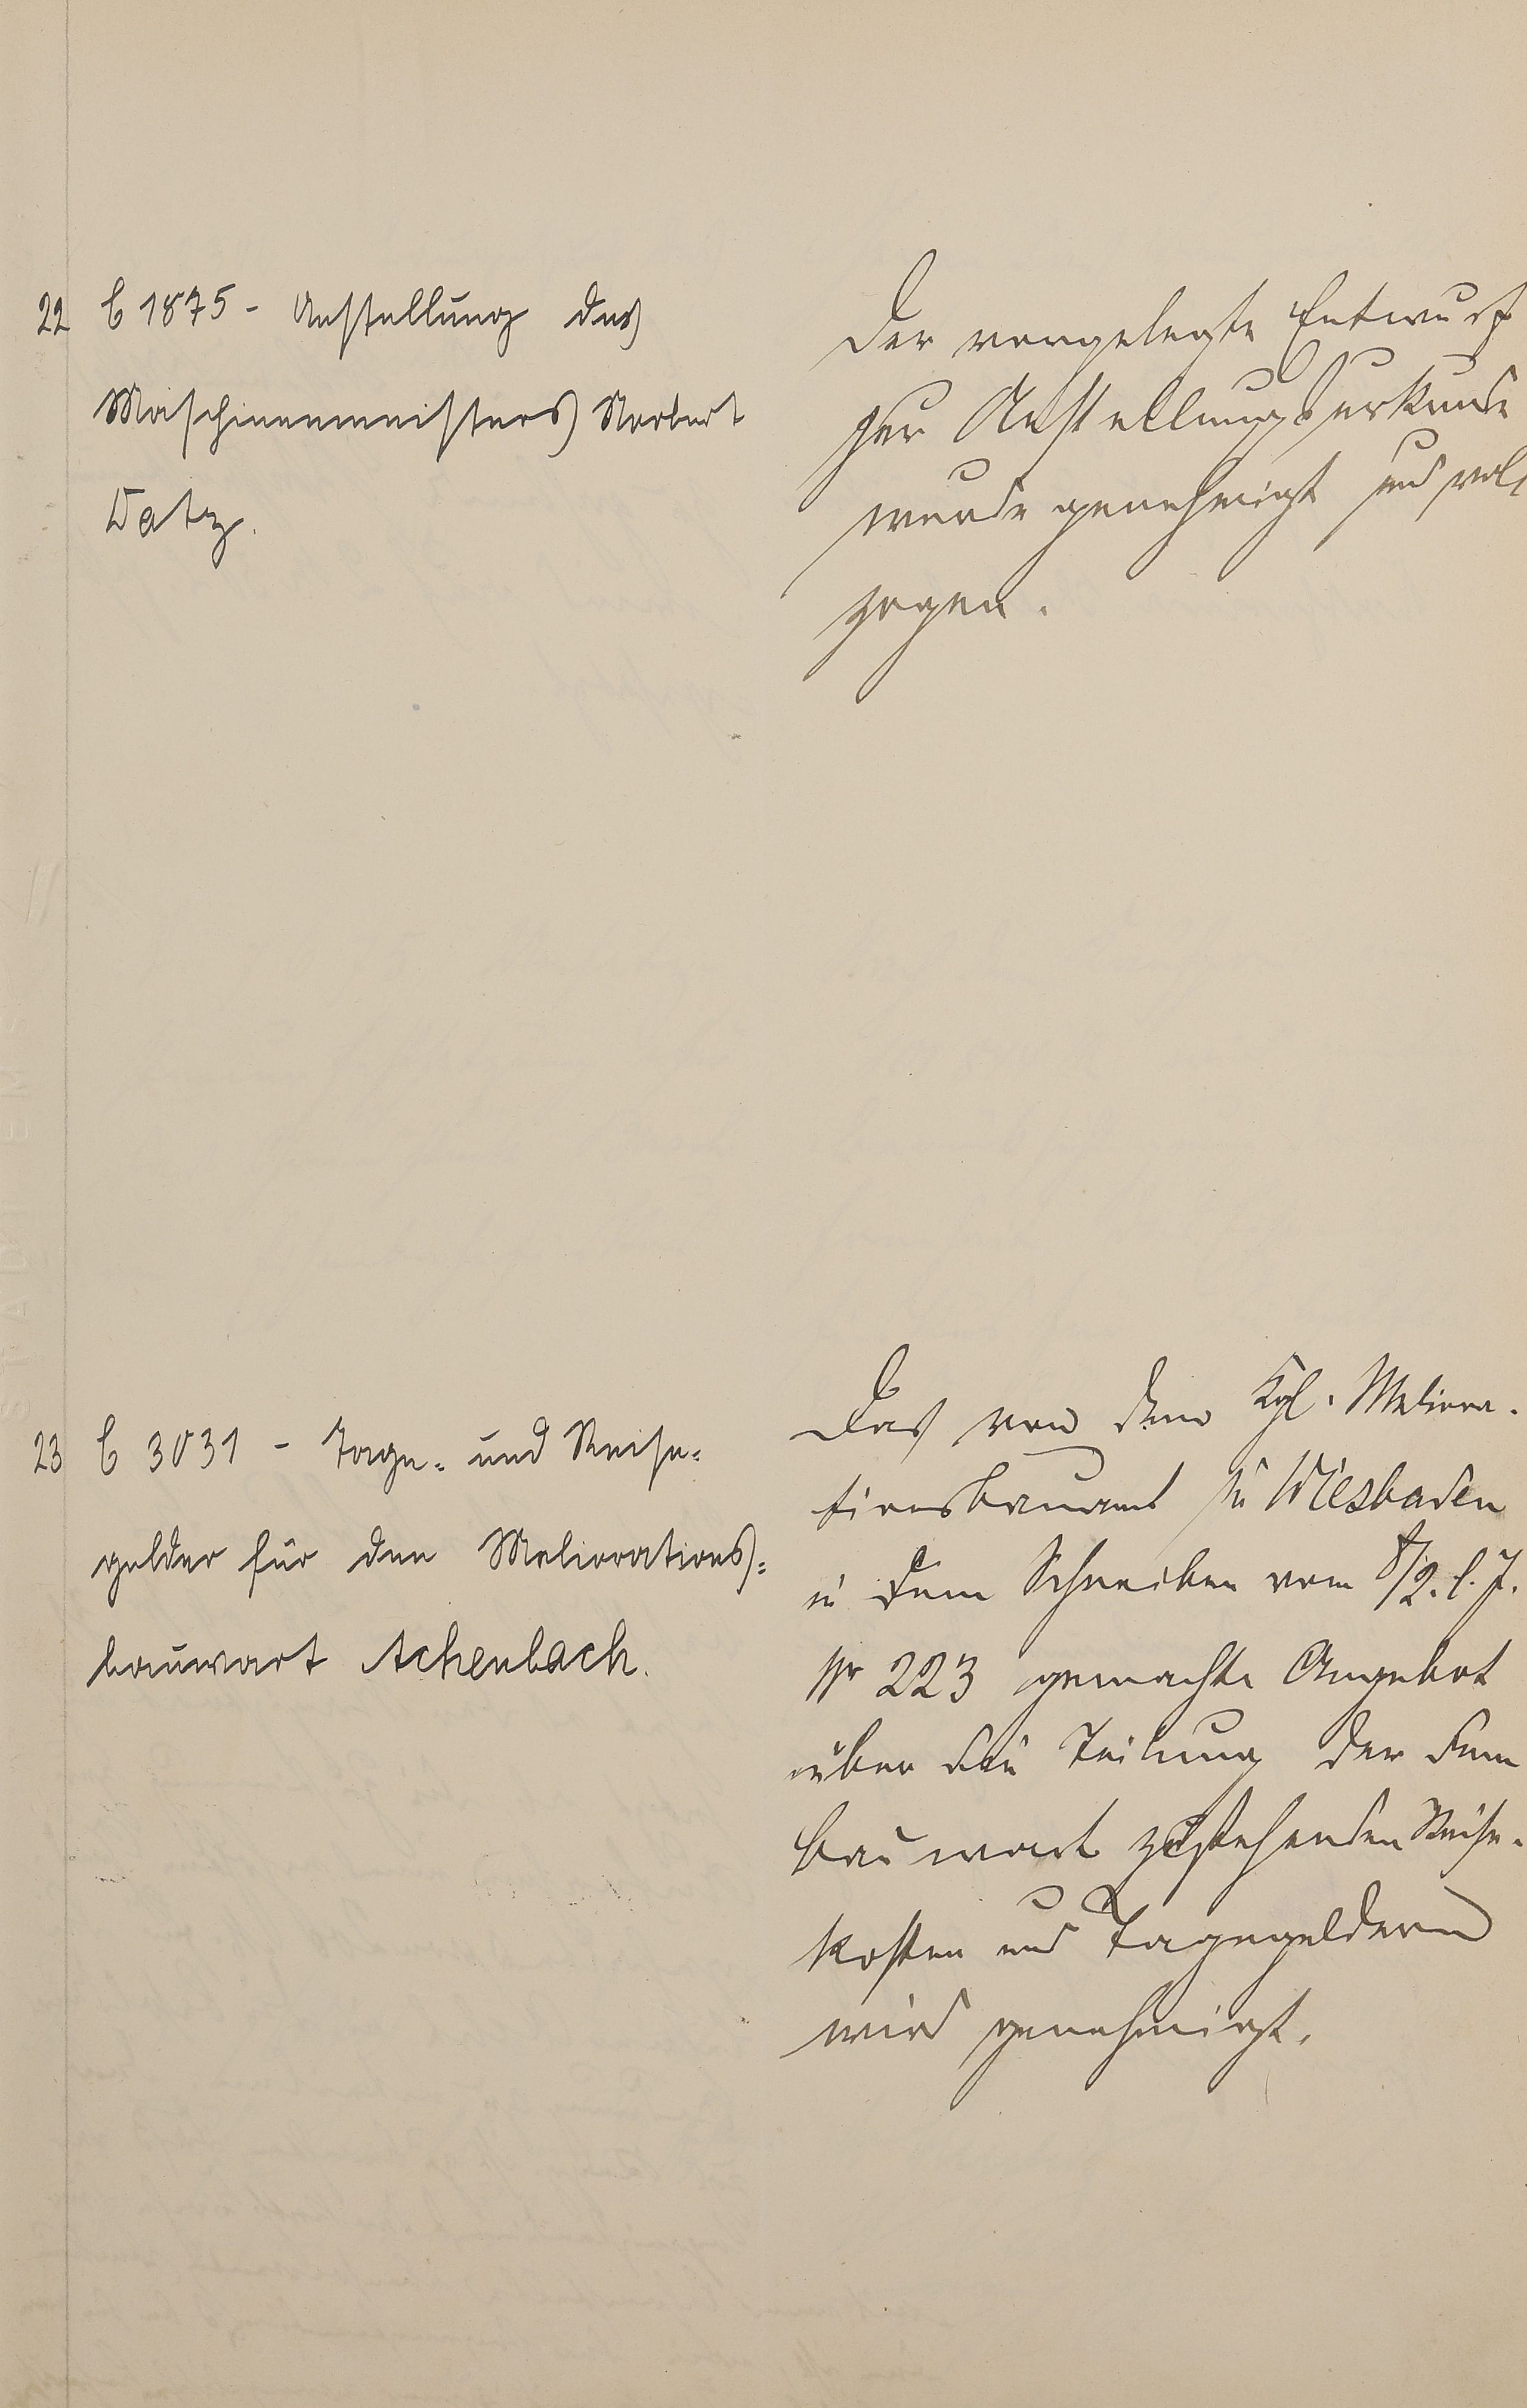 22 C 1875 - Anstellung des
Maschinenmeisters Norbert
Datz.
Der vorgelegte Entwurf
zur Anstellungsurkunde
wurde genehmigt und voll
zogen.
23 C 3031 - Tage- und Reise-
gelder für den Meliorations-
bauwart Achenbach.
Das von dem Kgl. Meliora-
tionsbauamt zu Wiesbaden
in dem Schreiben vom 8/2. l. J.
Nr 223 gemachte Angebot
über die Teilung der dem
Bauwart zustehenden Reise-
kosten und Tagegeldern
wird genehmigt.